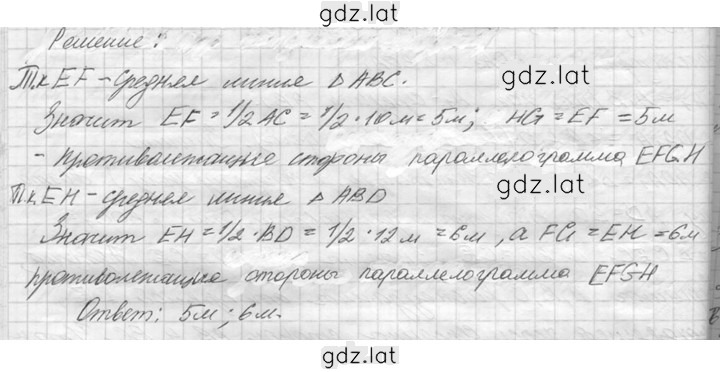 gdz.lat
Решение:
Т.к EF - средняя линия △ ABC.
gdz.lat
Значит EF = 1/2 AC = 1/2 · 10 м = 5м; HG = EF = 5м
- противолежащие стороны параллелограмма EFGH
Т.к. EH - средняя линия △ ABD
gdz.lat
Значит EH = 1/2 · BD = 1/2 · 12 м = 6м, а FG = EH = 6м
противолежащие стороны параллелограмма EFGH
Ответ: 5м; 6м.
gdz.lat